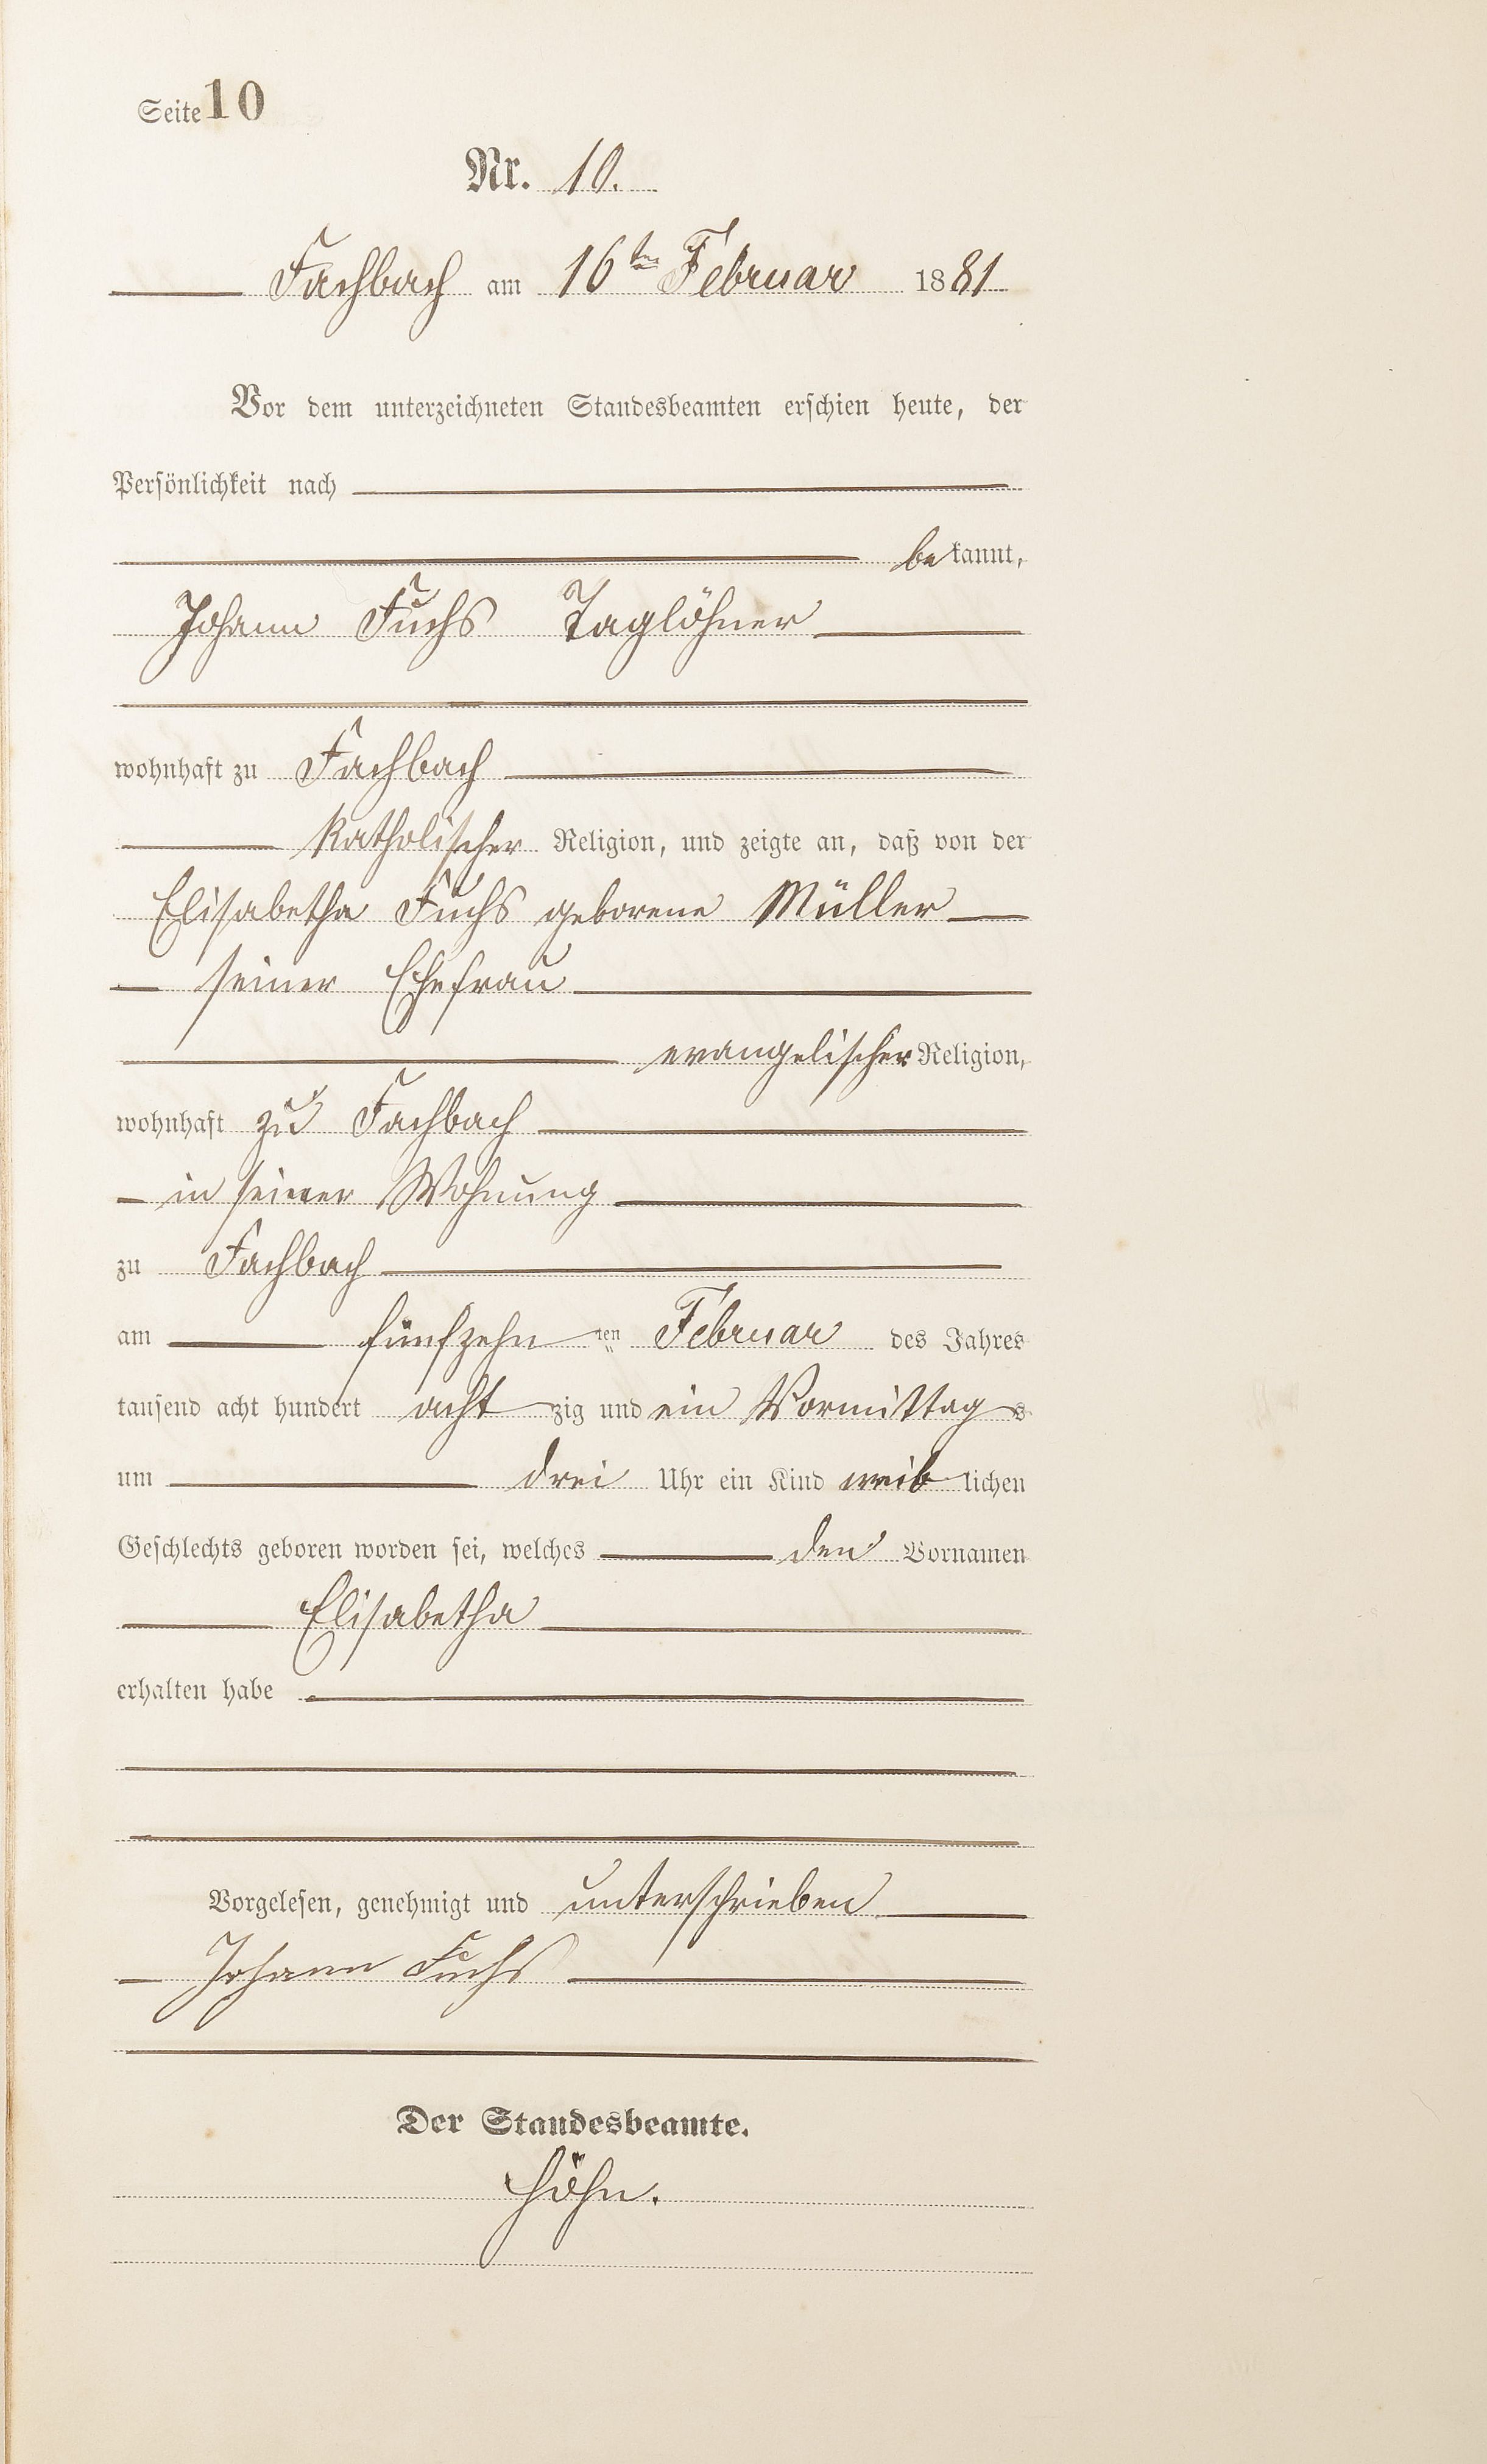 Seite 10
Nr. 10.
Fachbach am 16ten Februar 1881
Vor dem unterzeichneten Standesbeamten erschien heute, der
Persönlichkeit nach
bekannt,
Johann Fuchs Taglöhner
wohnhaft zu Fachbach
katholischer Religion, und zeigte an, daß von der
Elisabetha Fuchs geborene Müller
seiner Ehefrau
evangelischer Religion,
wohnhaft zu Fachbach
in seiner Wohnung
zu Fachbach
am fünfzehnten Februar des Jahres
tausend acht hundert achtzig und ein Vormittags
um drei Uhr ein Kind weiblichen
Geschlechts geboren worden sei, welches den Vornamen
Elisabetha
erhalten habe
Vorgelesen, genehmigt und unterschrieben
Johann Fuchs
Der Standesbeamte.
Höhn.